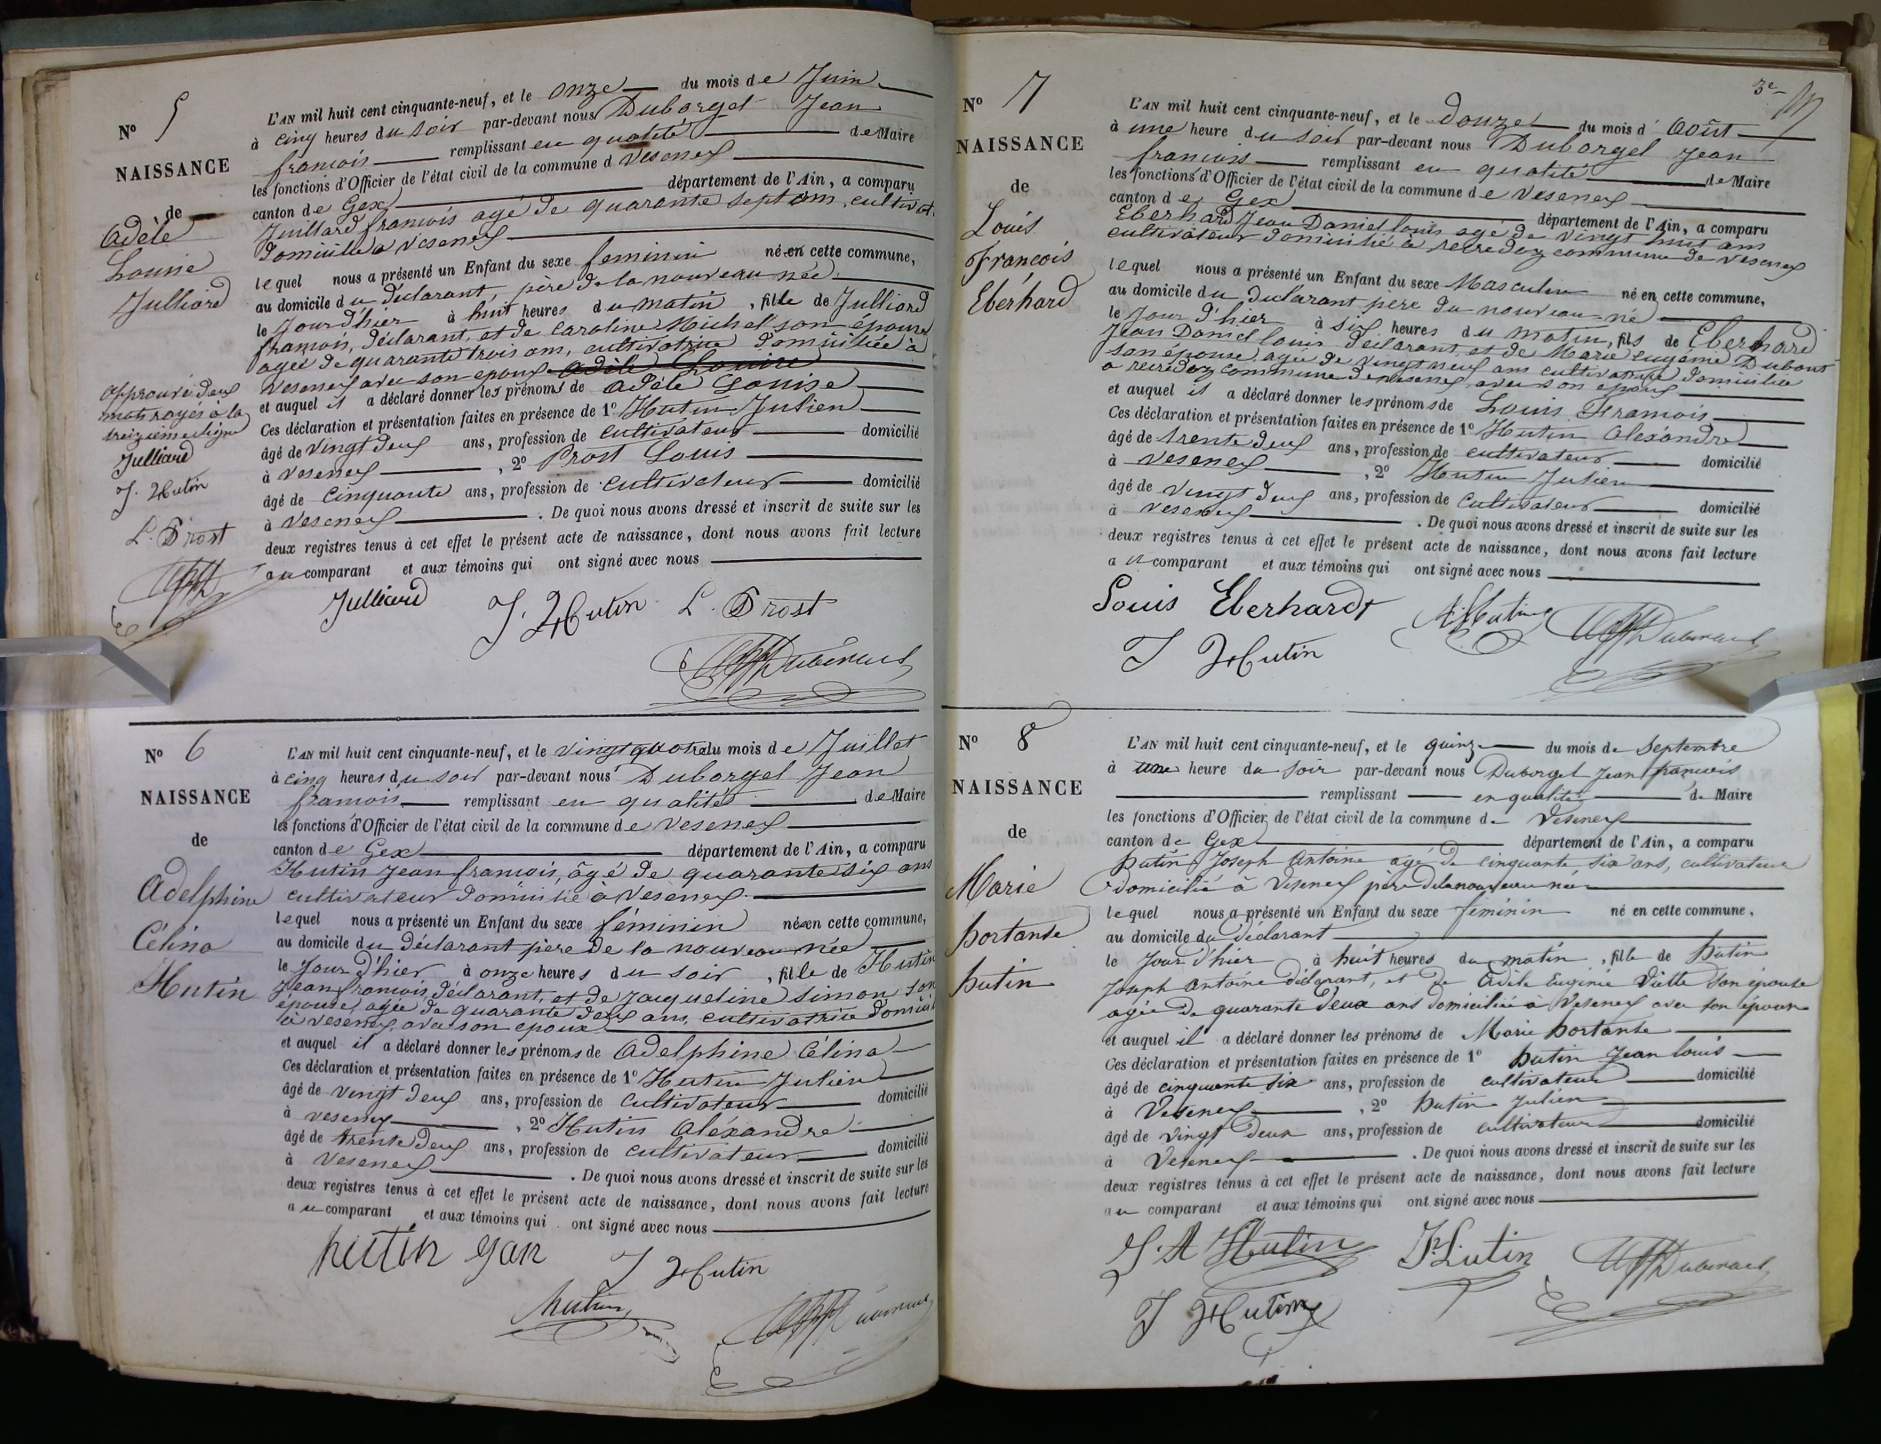 N° 5
NAISSANCE
de
Adèle
Louise
Julliard
approuvé deux
mots rayés à la
treizième ligne
Julliard
J. Hutin
L. Prost
L'AN mil huit cent cinquante-neuf, et le onze du mois de Juin
à cinq heures du soir par-devant nous Duborgel Jean
francois remplissant en qualité de Maire
les fonctions d'Officier de l'état civil de la commune d Vesenex
canton de Gex département de l'Ain, a comparu
Juillard francois agé de quarante sept ans, cultivat.
domicilié à Vesenex
lequel nous a présenté un Enfant du sexe feminin né en cette commune,
au domicile du déclarant, père de la nouveau née
le jour d'hier à huit heures du matin, fille de Julliard
francois, déclarant, et de Caroline Michel son épouse
agée de quarante trois ans, cultivatrice domiciliée à
Vesenex avec son epoux Adèle Louise
et auquel il a déclaré donner les prénoms de Adèle Louise
Ces déclaration et présentation faites en présence de 1° Hutin Julien
âgé de vingt deux ans, profession de cultivateur domicilié
à Vesenex, 2° Prost Louis
âgé de cinquante ans, profession de cultivateur domicilié
à Vesenex. De quoi nous avons dressé et inscrit de suite sur les
deux registres tenus à cet effet le présent acte de naissance, dont nous avons fait lecture
au comparant et aux témoins qui ont signé avec nous
Julliard J. Hutin L. Prost
N° 6
NAISSANCE
de
Adelphine
Célina
Hutin
L'AN mil huit cent cinquante-neuf, et le vingt quatre du mois de Juillet
à cinq heures du soir par-devant nous Duborgel Jean
francois remplissant en qualités de Maire
les fonctions d'Officier de l'état civil de la commune de Vesenex
canton de Gex département de l'Ain, a comparu
Hutin Jean francois, âgé de quarante six ans
cultivateur domicilié à Vesenex
lequel nous a présenté un Enfant du sexe féminin née en cette commune,
au domicile du déclarant père de la nouveau née
le jour d'hier à onze heures du soir, fille de Hutin
Jean francois, déclarant, et de Jacqueline Simon son
épouse, agée de quarante deux ans, cultivatrice domicil
à Vesenex avec son epoux
et auquel il a déclaré donner les prénoms de Adelphine Célina
Ces déclaration et présentation faites en présence de 1° Hutin Julien
âgé de vingt deux ans, profession de cultivateur domicilié
à Vesenex, 2° Hutin Aléxandre
âgé de trente deux ans, profession de cultivateur domicilié
à Vesenex. De quoi nous avons dressé et inscrit de suite sur les
deux registres tenus à cet effet le présent acte de naissance, dont nous avons fait lecture
au comparant et aux témoins qui ont signé avec nous
hutin Jan J Hutin
hutin
3e
N° 7
NAISSANCE
de
Louis
François
Ebérhard
L'AN mil huit cent cinquante-neuf, et le douze du mois d' Août
à une heure du soir par-devant nous Duborgel Jean
francois remplissant en qualité de Maire
les fonctions d'Officier de l'état civil de la commune de Vesenex
canton de Gex département de l'Ain, a comparu
Eberhard Jean Daniel louis agé de vingt huit ans
cultivateur domicilié à recredoz commune de Vesenex
lequel nous a présenté un Enfant du sexe Masculin né en cette commune,
au domicile du déclarant père du nouveau né
le jour d'hier à six heures du matin, fils de Eberhard
Jean Daniel louis déclarant, et de Marie Eugénie Dubout
son épouse, agée de vingt neuf ans cultivatrice domicilié
a recredoz commune de vesenex avec son epoux
et auquel il a déclaré donner les prénoms de Louis François
Ces déclaration et présentation faites en présence de 1° Hutin Aléxandre
âgé de trente deux ans, profession de cultivateur domicilié
à Vesenex, 2° Hutin Julien
âgé de vingt deux ans, profession de cultivateur domicilié
à Vesenex. De quoi nous avons dressé et inscrit de suite sur les
deux registres tenus à cet effet le présent acte de naissance, dont nous avons fait lecture
au comparant et aux témoins qui ont signé avec nous
Louis Eberhardt A. Hutin
J Hutin
N° 8
NAISSANCE
de
Marie
hortanse
hutin
L'AN mil huit cent cinquante-neuf, et le quinze du mois de Septembre
à une heure du soir par-devant nous Duborgel Jean francois
remplissant en qualité de Maire
les fonctions d'Officier de l'état civil de la commune de Vesenex
canton de Gex département de l'Ain, a comparu
hutin Joseph Antoine agé de cinquante six ans, cultivateur
domicilié à Vesenex père de la nouveau née
lequel nous a présenté un Enfant du sexe féminin né en cette commune,
au domicile du déclarant
le jour d'hier à huit heures du matin, fille de hutin
Joseph Antoine déclarant, et de Adèle Eugénie Vialle son épouse
agée de quarante deux ans domiciliée à Vesenex avec son époux
et auquel il a déclaré donner les prénoms de Marie hortanse
Ces déclaration et présentation faites en présence de 1° hutin Jean louis
âgé de cinquante six ans, profession de cultivateur domicilié
à Vesenex, 2° hutin Julien
âgé de vingt deux ans, profession de cultivateur domicilié
à Vesenex. De quoi nous avons dressé et inscrit de suite sur les
deux registres tenus à cet effet le présent acte de naissance, dont nous avons fait lecture
au comparant et aux témoins qui ont signé avec nous
J. A Hutin J. L. utin
J Hutin